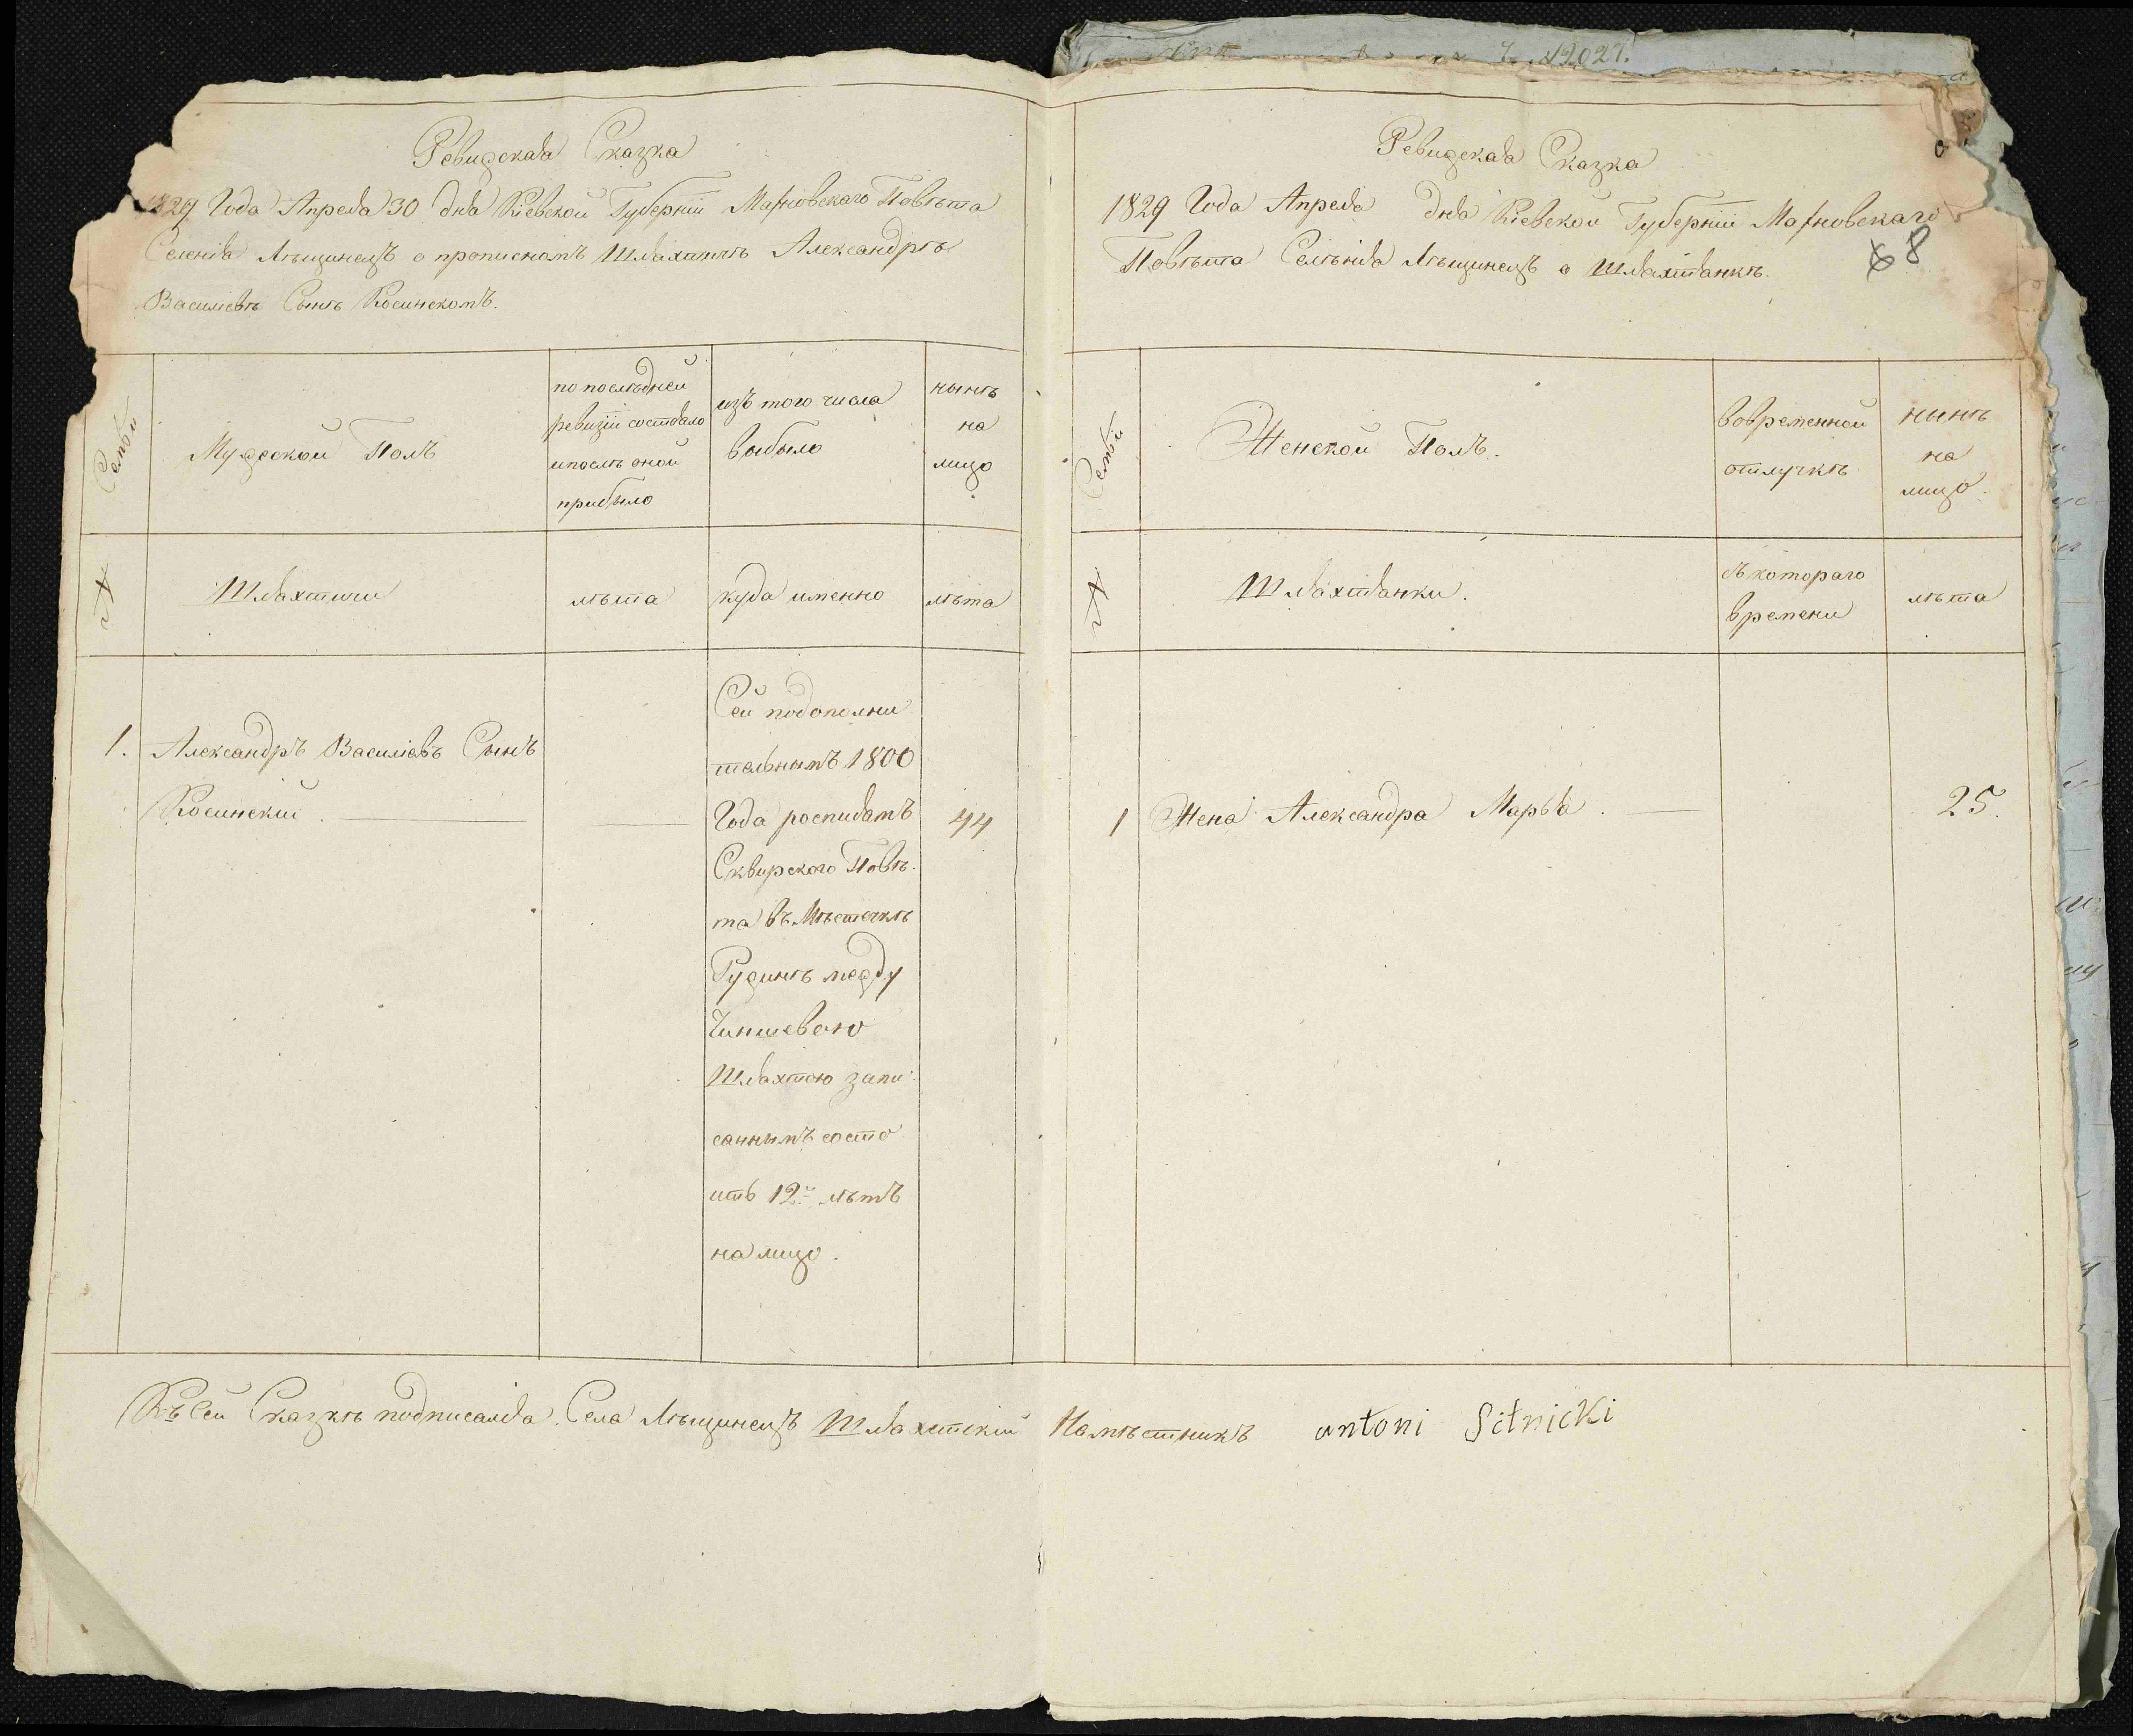 № 2027.
Ревизская Сказка
1829 Года Апреля 30 дня Кіевской Губерніи Махновскаго Повѣта
Селенія Лѣщинецъ о прописномъ Шляхтичѣ Александрѣ
Василіевѣ Сынѣ Косинскомъ.
Семьи
Мужеской Полъ
по послѣдней
ревизіи состояло
и послѣ оной
прибыло
изъ того числа
выбыло
нынѣ
на
лицо
№
Шляхтичи
лѣта
куда именно
лѣта
1. Александръ Василіевъ Сынъ
Косинскій.
Сей по дополни
тельнымъ 1800
Года росписямъ
Сквирского Повѣ-
та въ Мѣстечкѣ
Ружинѣ между
Чиншевою
Шляхтою запи-
саннымъ состо
итъ 12й лѣтъ
на лицо.
44
Ревизская Сказка
1829 Года Апреля дня Кіевской Губерніи Махновскаго
Повѣта Селѣнія Лѣщинецъ о Шляхтянкѣ.
8
Семьи
Женской Полъ.
во временной
отлучкѣ
нынѣ
на
лицо.
№
Шляхтянки.
съ котораго
времени
лѣта
1 Жена Александра Марья.
25.
Къ Сей Сказкѣ подписался Села Лѣщинецъ Шляхетскій Намѣстникъ antoni Sitnicki